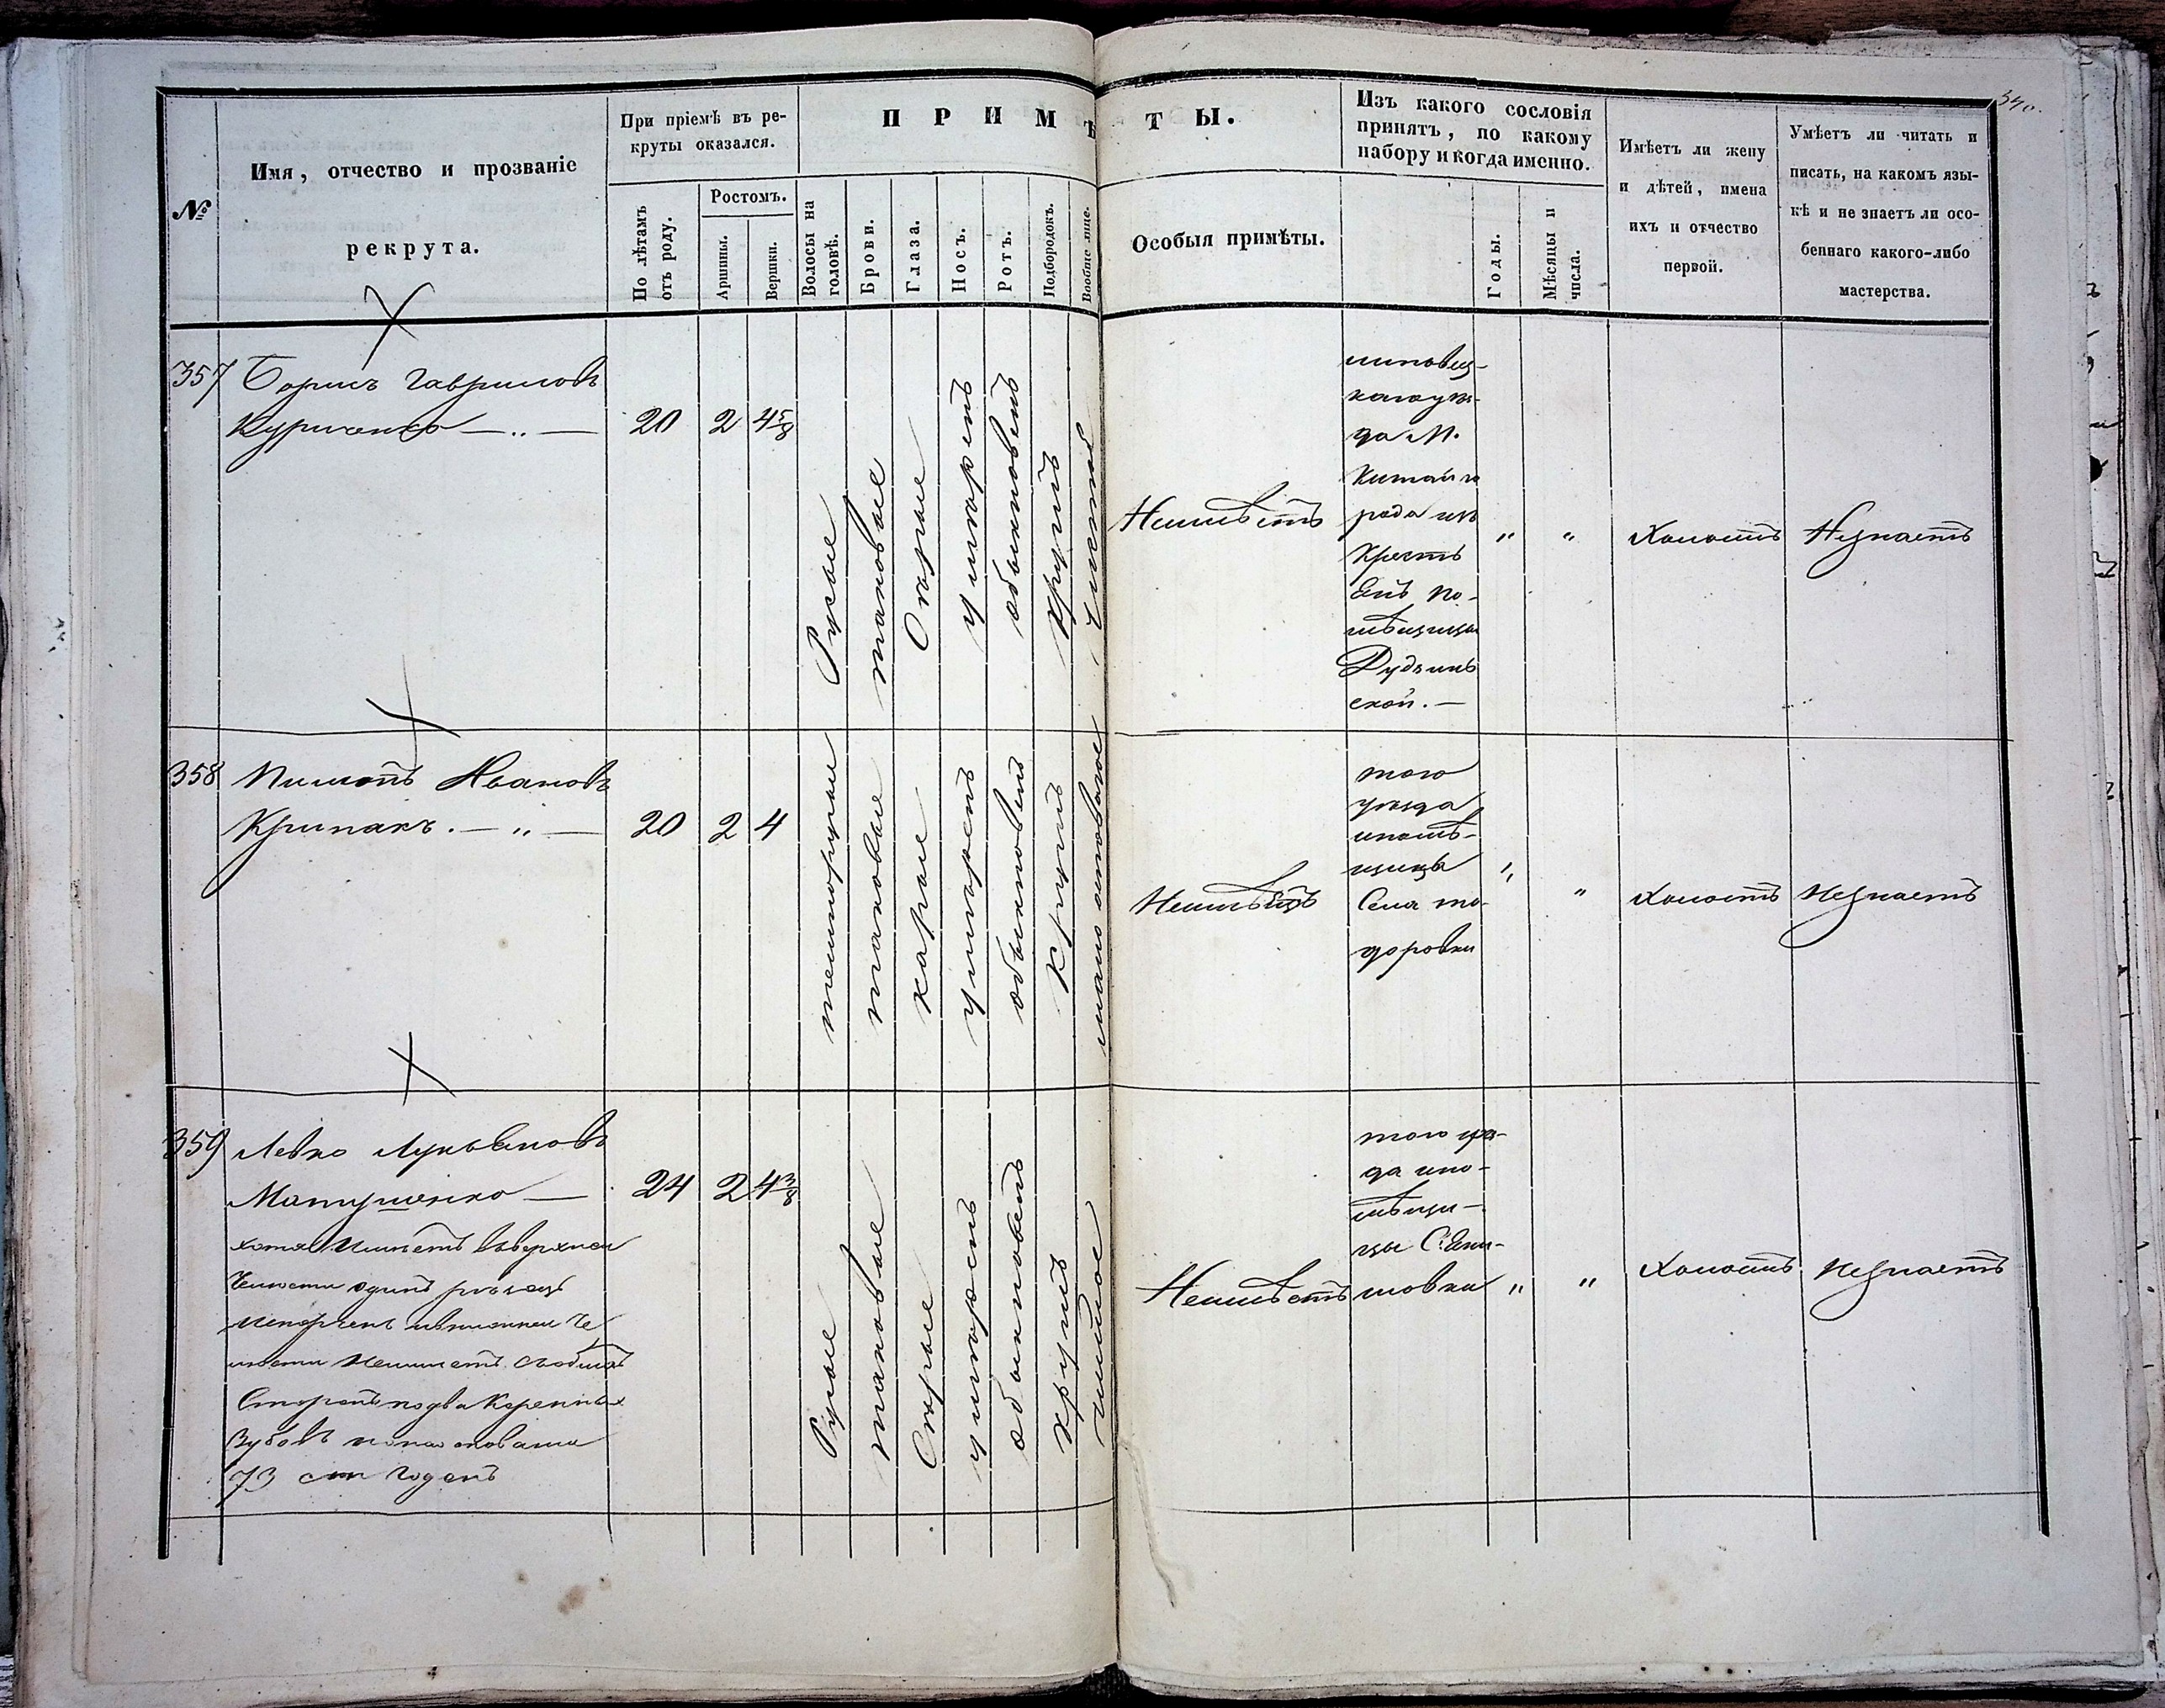 340.
№
Имя, отчество и прозваніе
рекрута.
При пріемѣ въ ре-
круты оказался.
По лѣтамъ
отъ роду.
Ростомъ.
Аршины.
Вершки.
ПРИМѢТЫ.
Волосы на
головѣ.
Брови.
Глаза.
Носъ.
Ротъ.
Подбородокъ.
Вообще лице.
Особыя примѣты.
Изъ какого сословія
принятъ, по какому
набору и когда именно.
Годы.
Мѣсяцы и
числа.
Имѣетъ ли жену
и дѣтей, имена
ихъ и отчество
первой.
Умѣетъ ли читать и
писать, на какомъ язы-
кѣ и не знаетъ ли осо-
беннаго какого-либо
мастерства.
357
Борисъ Гавриловъ
Куриченко — „ —
20
2
4 5/8
Русые
таковые
Серые
умѣренъ
обыкновенъ
круглъ
чистое
Неимѣетъ
липовец-
каго уѣз-
да М.
Китайго
рода изъ
Кресть
янъ по-
мѣщицы
Рудзин
ской. —
„
„
Холостъ
Незнаетъ
358
Пилипъ Ивановъ
Крипакъ. — „ —
20
2
4
темнорусые
таковые
карые
умѣренъ
обыкновенъ
круглъ
мало осповатое
Неимѣетъ
того
уѣзда
ипомѣ-
щицы
Села то-
доровки
„
„
Холостъ
Незнаетъ
359
Левко Лукьяновъ
Матушенко —
хотя Имѣетъ въверхней
Челюсти одинъ рѣзецъ
Испорченъ Че
люсти Неимѣетъ собѣихъ
Сторонъ по два Коренныхъ
Зубовъ но на основании
73 ст. Годенъ
24
2
4 3/8
Русые
таковые
Серые
умѣренъ
обыкновенъ
круглъ
чистое
Неимѣетъ
того уѣз-
да ипо-
мѣщи-
цы С.
шовки
„
„
Холостъ
Незнаетъ